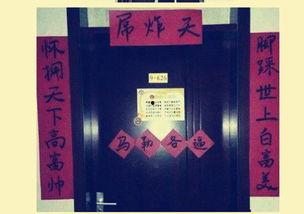 屌炸天
脚踩世上白富美
怀拥天下高富帅
9-626
马勒各逼